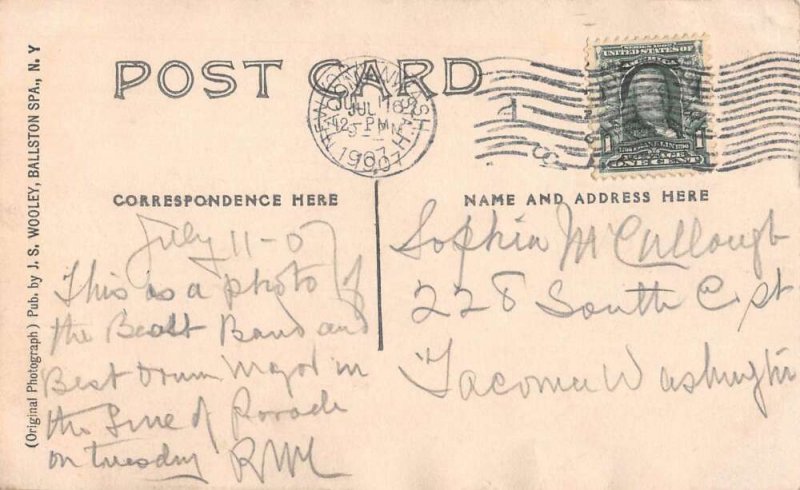 POST CARD
JUL 16
12-PM
1907
SERIES 1902
UNITED STATES OF
AMERICA
1 1
ONE CENT
CORRESPONDENCE HERE
NAME AND ADDRESS HERE
(Original Photograph) Pub. by J. S. WOOLEY, BALLSTON SPA., N. Y
July 11-07
This is a photo of
the Band and
Best Drum Major in
the Line of Parade
on tuesday
Sophia McCullough
228 South C st
Tacoma Washington